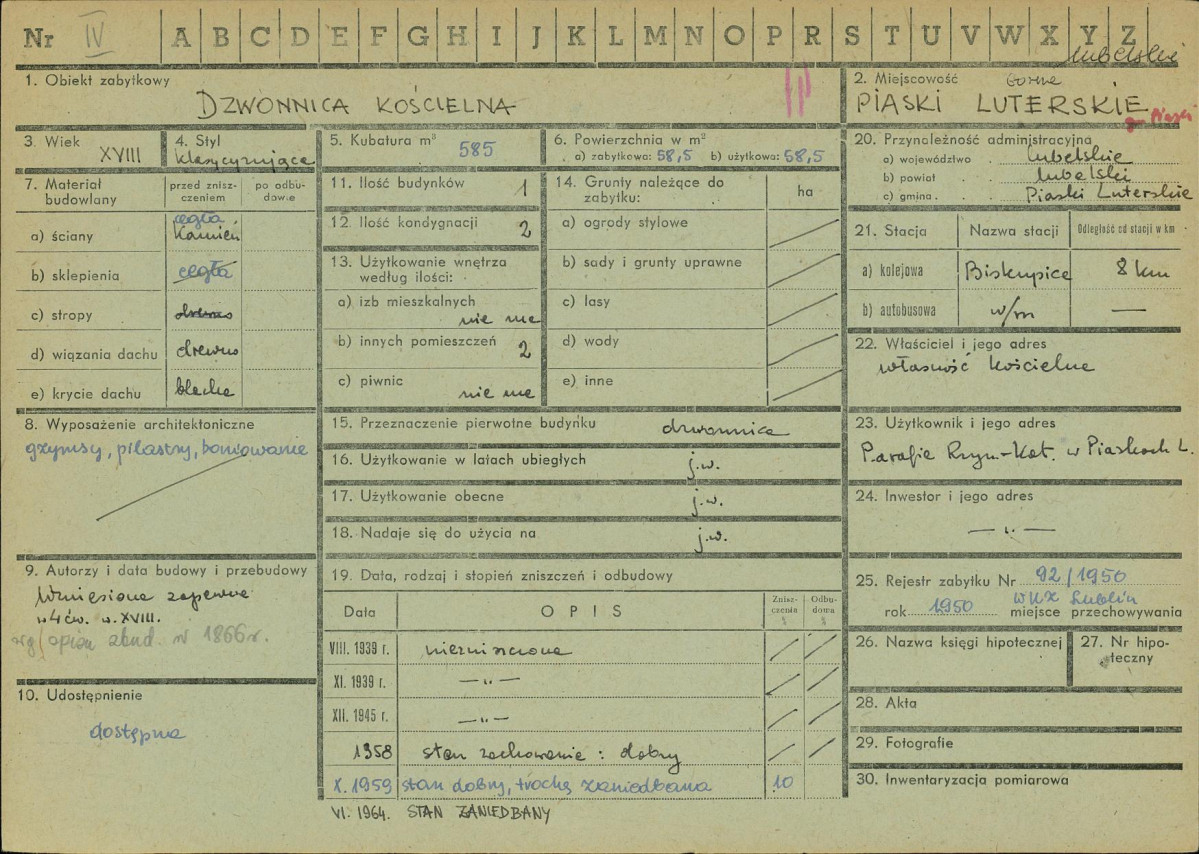 Nr IV A B C D E F G H I J K L M N O P R S T U V W X Y Z
lubelskie
1. Obiekt zabytkowy
DZWONNICA KOŚCIELNA
2. Miejscowość
PIASKI LUTERSKIE
Piaski
3. Wiek
XVIII
4. Styl
klasycyzująca
5. Kubatura m³ 585
6. Powierzchnia w m²
a) zabytkowa: 58,5 b) użytkowa: 58,5
20. Przynależność administracyjna
a) województwo lubelskie
b) powiat lubelski
c) gmina Piaski Luterskie
7. Materiał budowlany
przed zniszczeniem
po odbudowie
a) ściany cegła kamień
b) sklepienia cegła
c) stropy drewno
d) wiązania dachu drewno
e) krycie dachu blacha
11. Ilość budynków 1
12. Ilość kondygnacji 2
13. Użytkowanie wnętrza
według ilości:
a) izb mieszkalnych
nie ma
b) innych pomieszczeń 2
c) piwnic nie ma
14. Grunty należące do
zabytku:
ha
a) ogrody stylowe
b) sady i grunty uprawne
c) lasy
d) wody
e) inne
21. Stacja Nazwa stacji Odległość od stacji w km
a) kolejowa Biskupice 8 km
b) autobusowa w/m —
22. Właściciel i jego adres
własność kościelna
8. Wyposażenie architektoniczne
gzymsy, pilastry, boniowanie
15. Przeznaczenie pierwotne budynku dzwonnica
16. Użytkowanie w latach ubiegłych j.w.
17. Użytkowanie obecne j.w.
18. Nadaje się do użycia na j.w.
23. Użytkownik i jego adres
Parafia Rzym-Kat. w Piaskach L.
24. Inwestor i jego adres
— „ —
9. Autorzy i data budowy i przebudowy
Wzniesiona zapewne
w 4 ćw. w. XVIII.
wg opisu zbud. w 1866 r.
10. Udostępnienie
dostępna
19. Data, rodzaj i stopień zniszczeń i odbudowy
Data OPIS Zniszczenia % Odbudowa %
VIII. 1939 r. niezniszczona
XI. 1939 r. — „ —
XII. 1945 r. — „ —
1958 stan zachowania: dobry
X. 1959 stan dobry, trochę zaniedbana 10
VI. 1964. STAN ZANIEDBANY
25. Rejestr zabytku Nr 92/1950
WKZ Lublin
rok 1950 miejsce przechowywania
26. Nazwa księgi hipotecznej
27. Nr hipoteczny
28. Akta
29. Fotografie
30. Inwentaryzacja pomiarowa